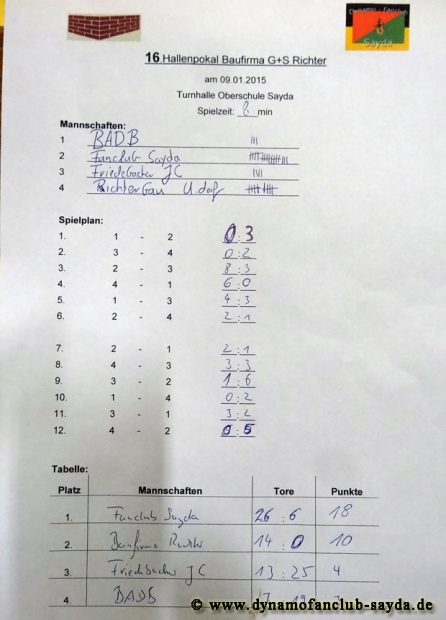 Dynamo - Fanclub
Sayda
16.Hallenpokal Baufirma G+S Richter
am 09.01.2015
Turnhalle Oberschule Sayda
Spielzeit: 8 min
Mannschaften:
1 BADB
2 Fanclub Sayda
3 Friedebacher JC
4
Spielplan:
1. 1 - 2 0:3
2. 3 - 4 0:2
3. 2 - 3 8:3
4. 4 - 1 6:0
5. 1 - 3 4:3
6. 2 - 4 2:1
7. 2 - 1 2:1
8. 4 - 3 3:3
9. 3 - 2 1:6
10. 1 - 4 0:2
11. 3 - 1 3:2
12. 4 - 2 0:5
Tabelle:
Platz Mannschaften Tore Punkte
1. Fanclub Sayda 26:6 18
2. 14: 10
3. Friedebacher JC 13:25 4
4. BADB
© www.dynamofanclub-sayda.de